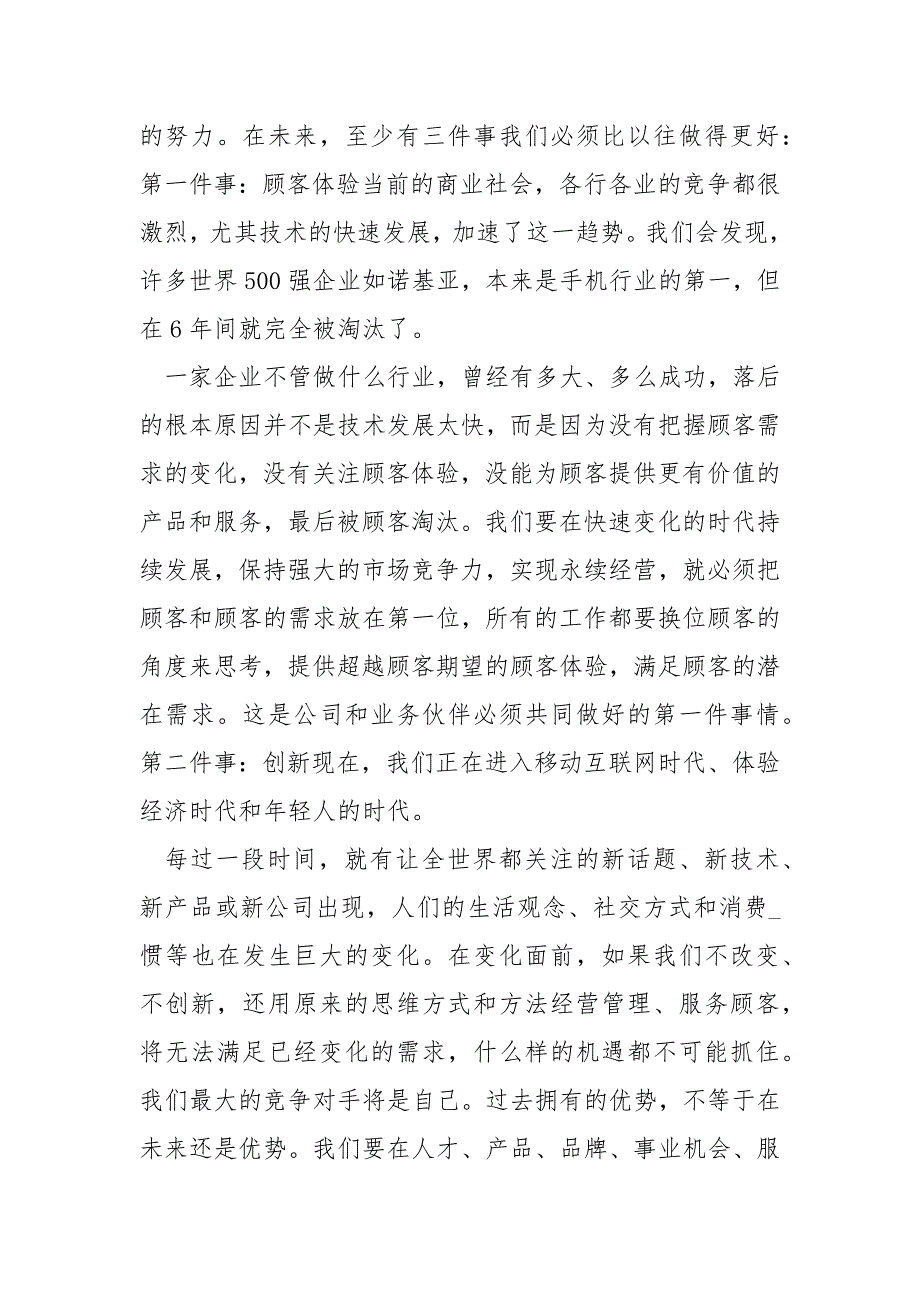 的努力。在未来，至少有三件事我们必须比以往做得更好：
第一件事：顾客体验当前的商业社会，各行各业的竞争都很
激烈，尤其技术的快速发展，加速了这一趋势。我们会发现，
许多世界 500 强企业如诺基亚，本来是手机行业的第一，但
在 6 年间就完全被淘汰了。
一家企业不管做什么行业，曾经有多大、多么成功，落后
的根本原因并不是技术发展太快，而是因为没有把握顾客需
求的变化，没有关注顾客体验，没能为顾客提供更有价值的
产品和服务，最后被顾客淘汰。我们要在快速变化的时代持
续发展，保持强大的市场竞争力，实现永续经营，就必须把
顾客和顾客的需求放在第一位，所有的工作都要换位顾客的
角度来思考，提供超越顾客期望的顾客体验，满足顾客的潜
在需求。这是公司和业务伙伴必须共同做好的第一件事情。
第二件事：创新现在，我们正在进入移动互联网时代、体验
经济时代和年轻人的时代。
每过一段时间，就有让全世界都关注的新话题、新技术、
新产品或新公司出现，人们的生活观念、社交方式和消费_
惯等也在发生巨大的变化。在变化面前，如果我们不改变、
不创新，还用原来的思维方式和方法经营管理、服务顾客，
将无法满足已经变化的需求，什么样的机遇都不可能抓住。
我们最大的竞争对手将是自己。过去拥有的优势，不等于在
未来还是优势。我们要在人才、产品、品牌、事业机会、服